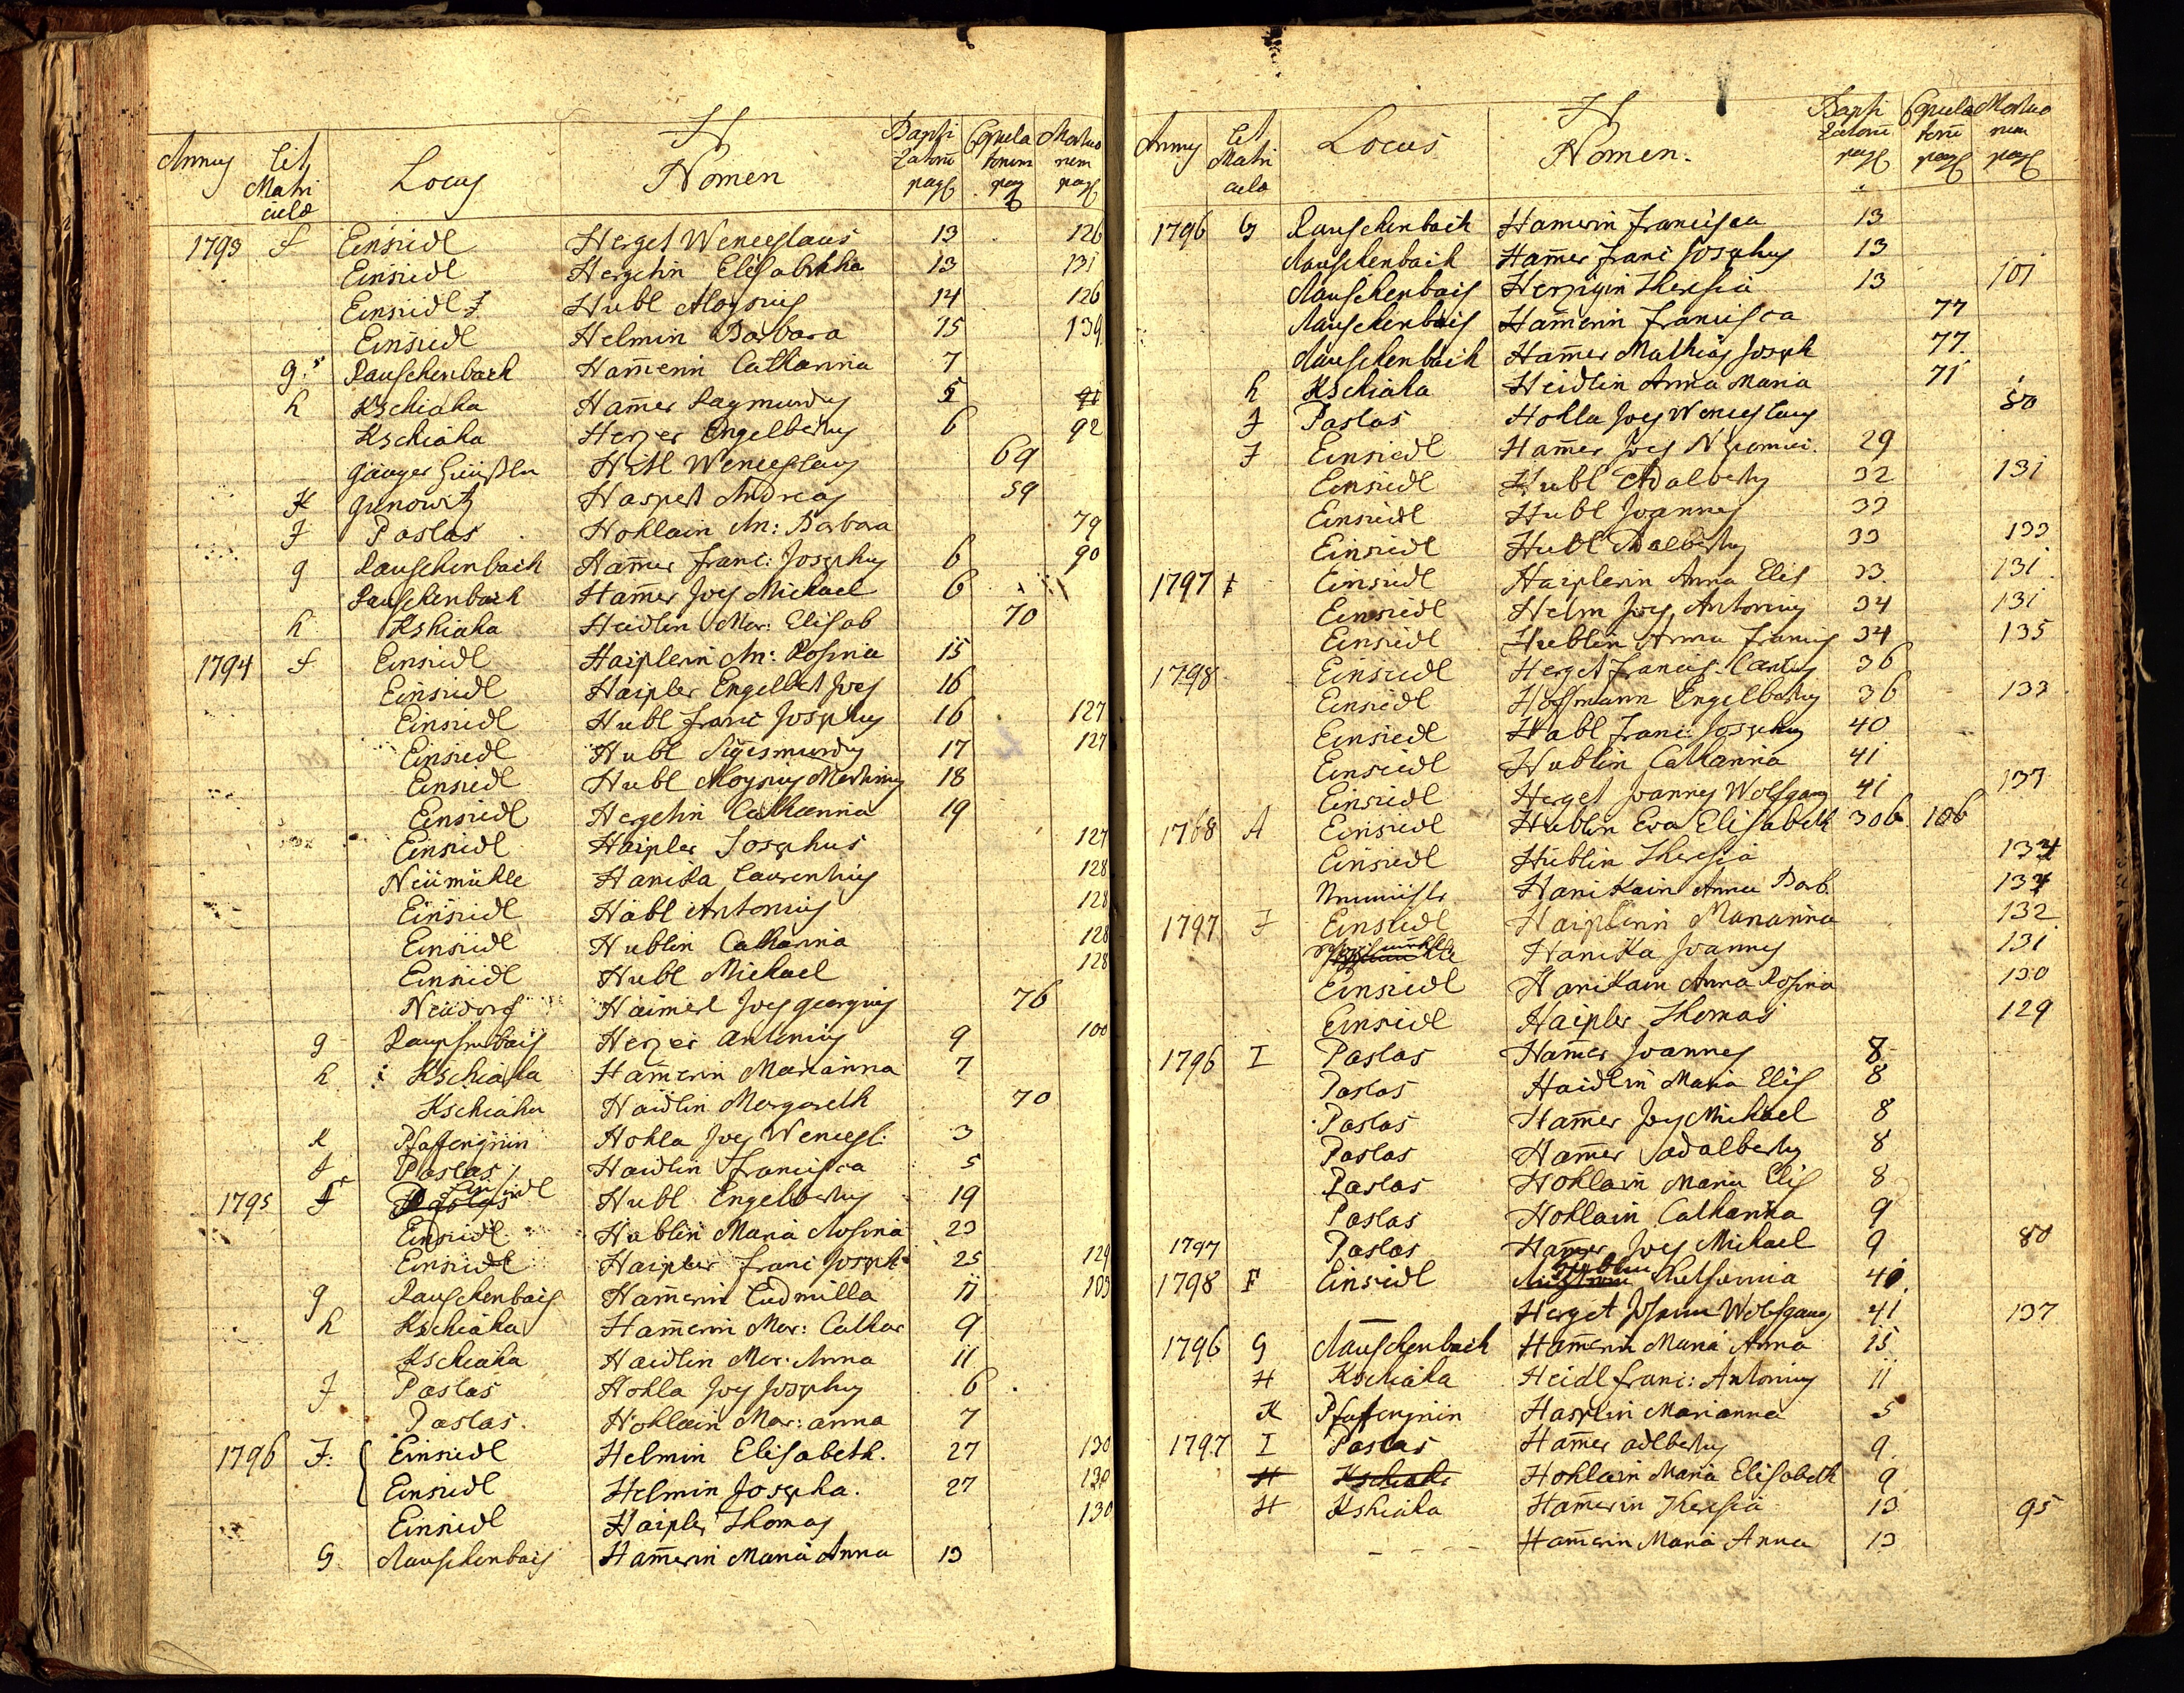 H
Annus Lit Matri culæ Locus Nomen Bapti zatorū pag Copula torum pag Mortuo rum pag
1793 f Einsiedl Herget Wenceslaus 13 126
Einsiedl Hergetin Elisabetha 13 131
Einsiedl Hubl Aloysius 14 126
Einsiedl Helmin Barbara 15 139
g Rauschenbach Ham̄erin Catharina 7
h Kschiaha Ham̄er Raymundus 5
Kschiaha Herzer Engelbertus 6 92
Wenceslaus 69
K Haspert Andreas 59
J Paslas Hohlain An: Barbara 79
g Rauschenbach Ham̄er Franc: Josephus 6 90
Rauschenbach Ham̄er Joes Michael 6
h Kshiaha Heidlin Mar: Elisab 70
1794 f Einsiedl Haiplerin An: Rosina 15
Einsiedl Haipler Engelbert Joes 16
Einsiedl Hubl Franc Josephus 16 127
Einsiedl Hubl Sigismundus 17 127
Einsiedl Hubl Aloysius Martinus 18
Einsiedl Hergetin Catharina 19
Einsiedl Haipler Josephus 127
Neümühle Hanika Laurentius 128
Einsiedl Habl Antonius 128
Einsiedl Hublin Catharina 128
Einsiedl Hubl Michael 128
Neüdorf Haimerl Joes georgius 76
g Herzer Antonius 9 100
h Kschiaha Ham̄erin Marianna 7
Kschiaha Haidlin Margareth 70
K Pfaffengrün Hohla Joes Wencesl: 3
J Paslas Haidlin Francisca 5
1795 F Einsiedl Hubl Engelbertus 19
Einsiedl Hublin Maria Rosina 23
Einsiedl Haipler Franc Joseph 25 129
g Rauschenbach Ham̄erin Ludmilla 11 103
h Kschiaha Ham̄erin Mar: Cathar 9
Kschiaha Haidlin Mar: Anna 11
J Paslas Hohla Joes Josephus 6
Paslas Hohlain Mar: anna 7
1796 F: Einsiedl Helmin Elisabeth. 27 130
Einsiedl Helmin Josepha. 27 130
Einsiedl Haipler Thomas 130
G Rauschenbach Ham̄erin Maria Anna 13
H
Annus Lit Matri culæ Locus Nomen. Bapti zatorū pag Copula torū pag Mortuo rum pag
1796 G Rauschenbach Hamerin Francisca 13
Rauschenbach Ham̄er Franc Josephus 13
Rauschenbach Theresia 13 101
Rauschenbach Ham̄erin Francisca 77
Rauschenbach Ham̄er Mathias Joseph 77
h Kschiaha Heidlin Anna Maria 71
J Paslas Hohla Joes Wenceslaus 80
F Einsiedl Ham̄er Joes Nepomuc. 29
Einsiedl Hubl Adalbertus 32 131
Einsiedl Hubl Joannes 33
Einsiedl Hubl Adalbertus 33 133
1797 f Einsiedl Haiplerin Anna Elis 33 131
Einsiedl Helm Joes Antonius 34 131
Einsiedl Hublin Anna Francis 34 135
1798 Einsiedl Herget Francis. Carlus 36
Einsiedl Hoffmann Engelbertus 36 133
Einsiedl Habl Franc: Josephus 40
Einsiedl Hublin Catharina 41
Einsiedl Herget Joannes Wolfgang 41 137
1768 A Einsiedl Hublin Eva Elisabeth 306 106
Einsiedl Hüblin Theresia 134
Hanikain Anna Barb. 134
1797 F Einsiedl Haiplerin Marianna 132
Hanika Joannes 131
Einsiedl Hanikain Anna Rosina 130
Einsiedl Haipler Thomas 129
1796 I Paslas Ham̄er Joannes 8
Paslas Haidlin Maria Elis 8
Paslas Ham̄er Joes Michael 8
Paslas Ham̄er adalbertus 8
Paslas Hohlain Maria Elis 8
Paslas Hohlain Catharina 9
1797 Paslas Ham̄er Joes Michael 9 80
1798 F Einsiedl Hublin 40
Herget Johann Wolfgang 41 137
1796 G Rauschenbach Ham̄erin Maria Anna 15
H Kschiaha Heidl Franc: Antonius 11
K Pfaffengrün Marianna 5
1797 I Paslas Ham̄er adlbertus 9
H Kschiaha Hohlain Maria Elisabeth 9
H Kshiaha Ham̄erin Theresia 13 95
- - - - Ham̄erin Maria Anna 13